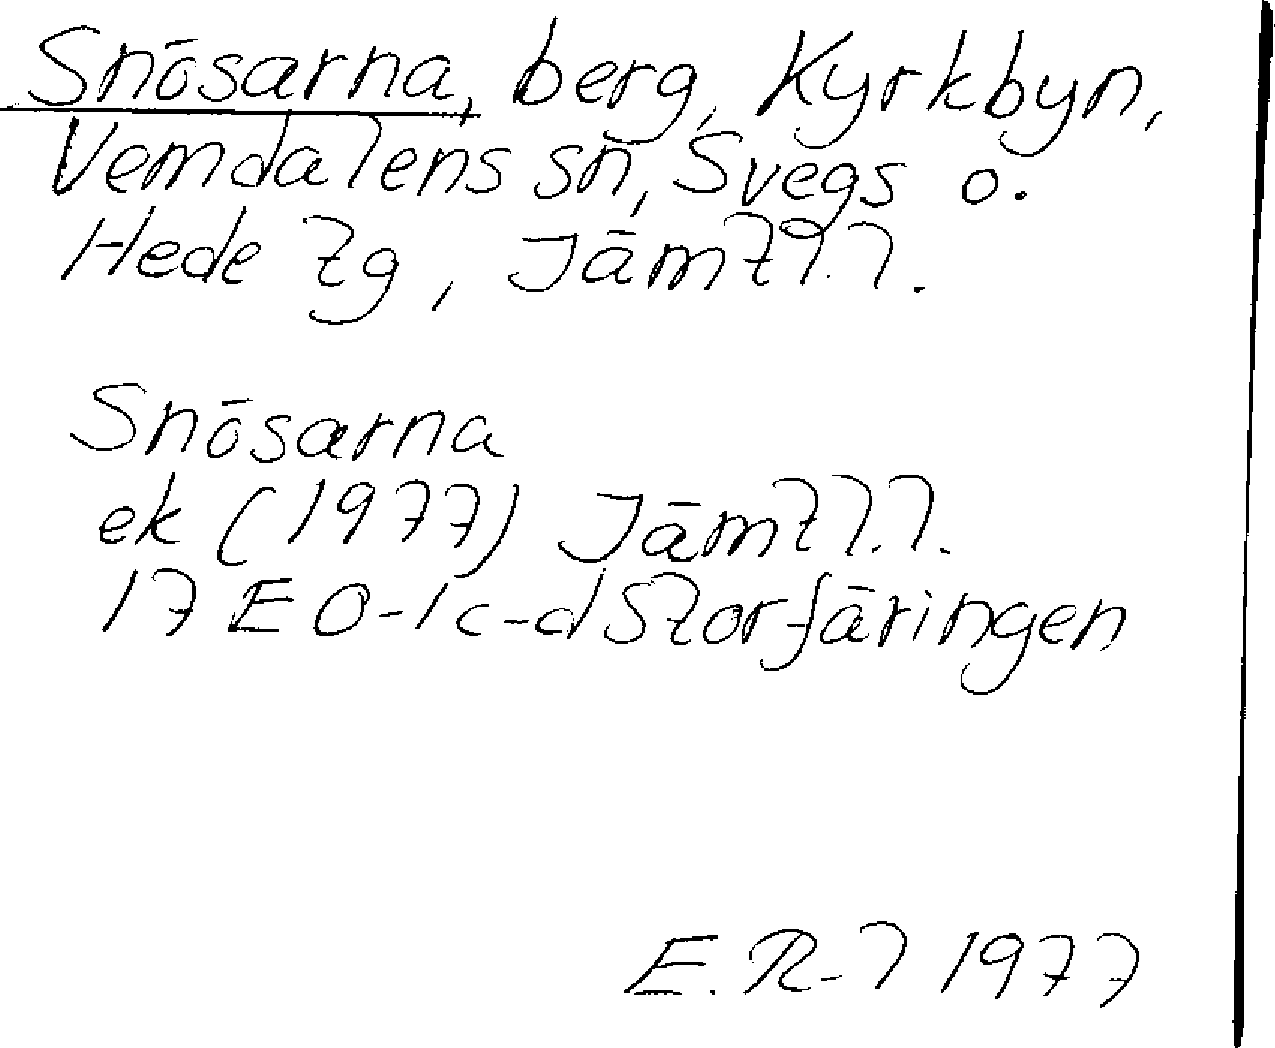 Snösarna, berg, Kyrkbyn,
Vemdalens sn, Svegs o.
Hede tg, Jämtl.l.
Snösarna
ek (1977) Jämtl.l.
17 E 0-1 c-d Storfäringen
E. R-l 1977